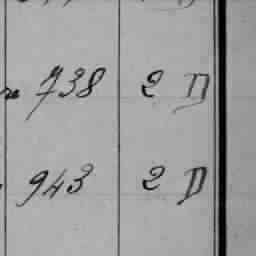 738 2 D
943 2 D